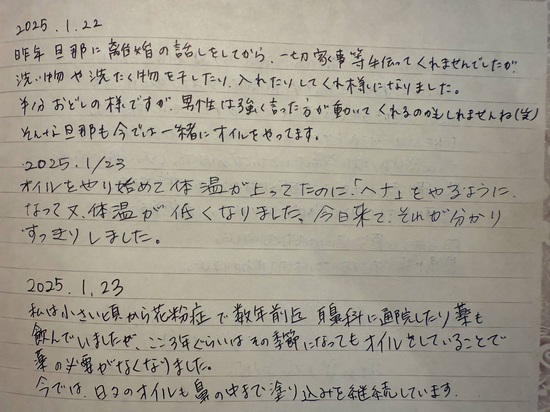 2025.1.22
昨年旦那に離婚の話しをしてから、一切家事等手伝ってくれませんでしたが
洗い物や洗たく物を干したり、入れたりしてくれ様になりました。
半分おどしの様ですが、男性は強く言った方が動いてくれるのかもしれませんね(笑)
そんな旦那も今では一緒にオイルをやってます。
2025.1/23
オイルをやり始めて体温が上ってたのに、「ヘナ」をやるように
なって又、体温が低くなりました。今日来て、それが分かり
すっきりしました。
2025.1.23
私は小さい頃から花粉症で数年前迄 耳鼻科に通院したり薬も
飲んでいましたが、ここ3年ぐらいはその季節になってもオイルをしていることで
薬の必要がなくなりました。
今では、日々のオイルも鼻の中まで塗り込みを継続しています.